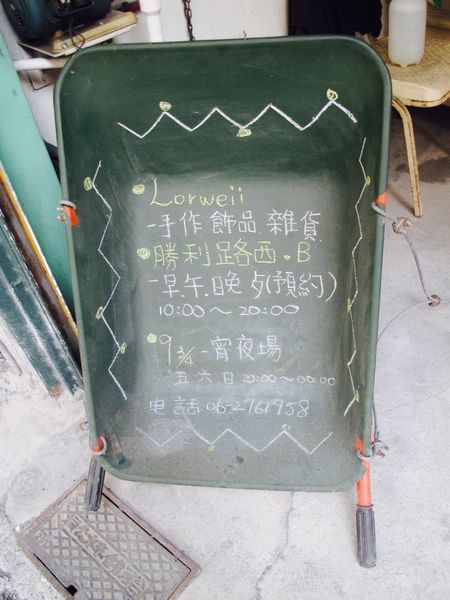 Lorweii
-手作 飾品 雜貨
勝利路西.B
-早.午.晚 夕(預約)
10:00～20:00
9 3/4 -宵夜場
五六日 20:00～00:00
电話:06-2761758